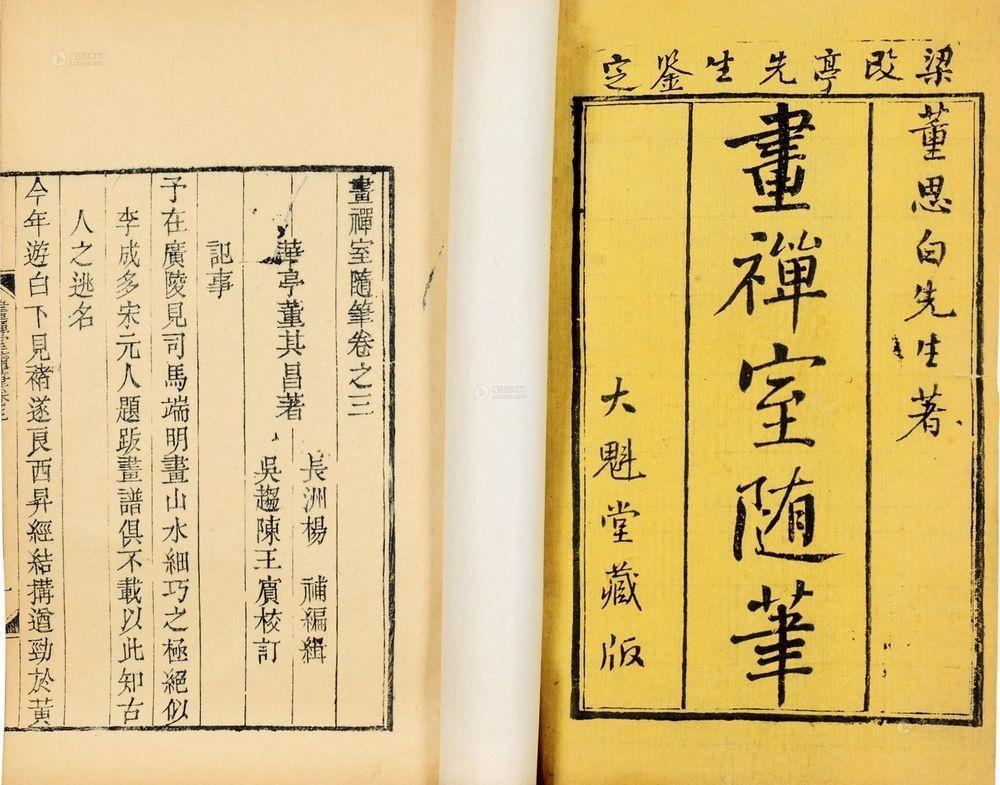 梁改亭先生鉴定
董思白先生著
畫禪室随筆
大魁堂藏版
畫禪室隨筆卷之三
華亭董其昌著
長洲楊 補編緝
吳趨陳王賓校訂
記事
予在廣陵見司馬端明畫山水細巧之極絕似
李成多宋元人題跋畫譜俱不載以此知古
人之逃名
今年遊白下見褚遂良西昇經結搆遒勁於黃